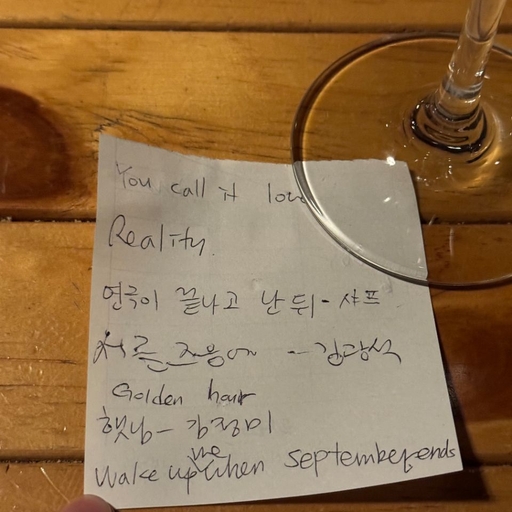 You call it love
Reality
연극이 끝나고 난 뒤 - 샤프
서른 즈음에 - 김광석
Golden hour
햇님 - 김정미
Wake me up when september ends